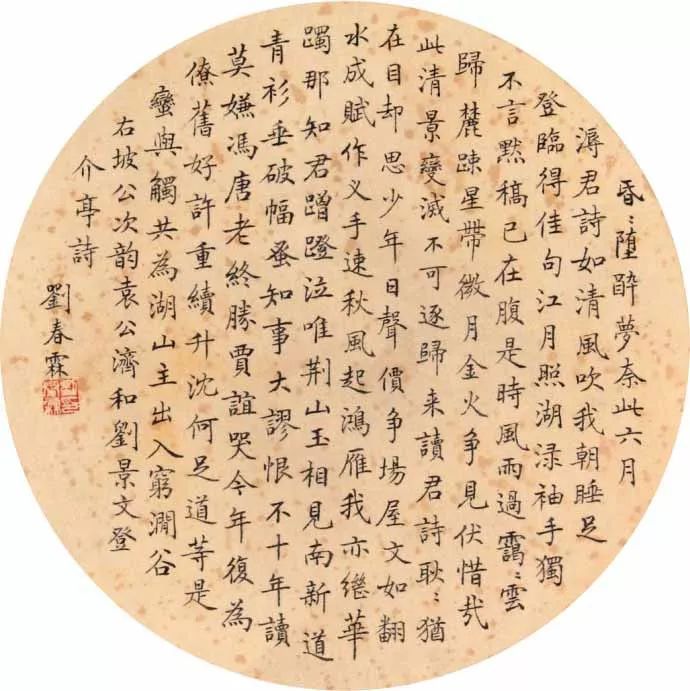 昏〻墮醉夢奈此六月
溽君詩如清風吹我朝睡足
登臨得佳句江月照湖渌袖手獨
不言默稿已在腹是時風雨過靄〻雲
歸麓踈星帶微月金火争見伏惜哉
此清景變滅不可逐歸来讀君詩耿〻猶
在目却思少年日聲價争場屋文如翻
水成賦作义手速秋風起鴻雁我亦繼華
躅那知君蹭蹬泣唯荆山玉相見南新道
青衫垂破幅蚤知事大謬恨不十年讀
莫嫌馮唐老終勝賈誼哭今年復為
僚舊好許重續升沈何足道等是
蠻與觸共為湖山主出入窮澗谷
右坡公次韵袁公濟和劉景文登
介亭詩
劉春霖